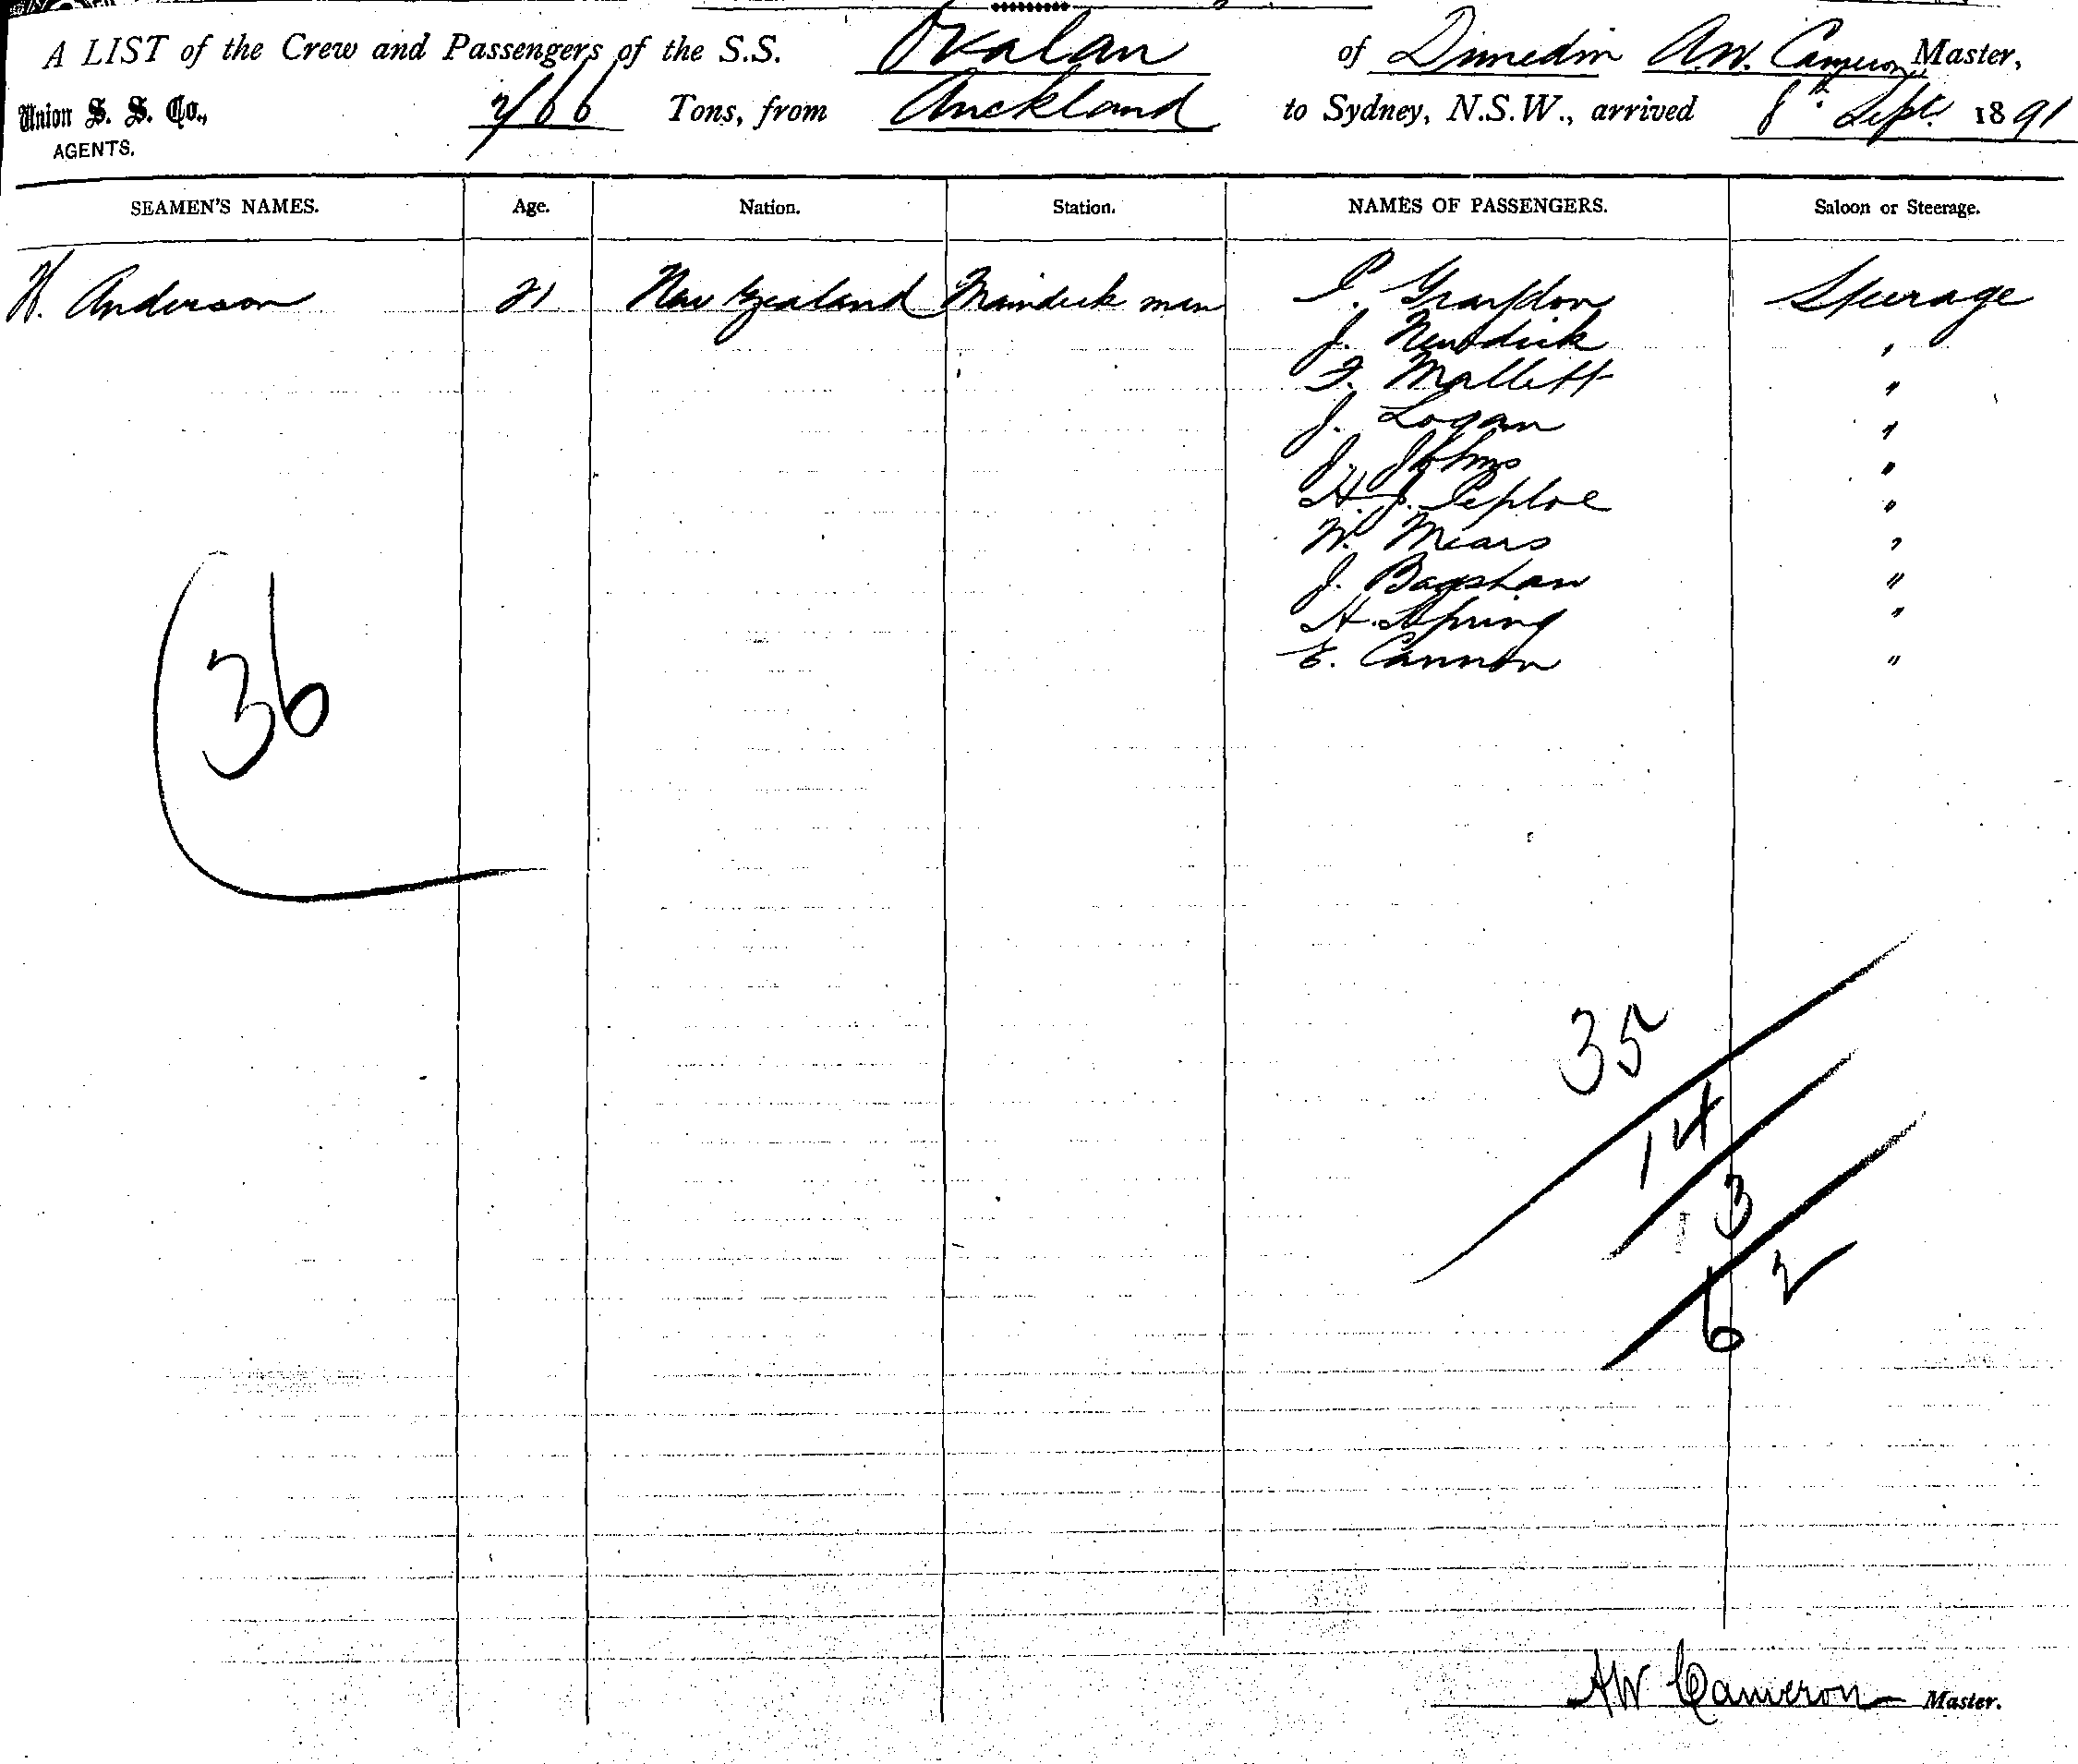 A LIST of the Crew and Passengers of the S.S. Ovalau of Dunedin A.W. Cameron, Master,
Union S. S. Co., 766 Tons, from Auckland to Sydney, N.S.W., arrived 8th Sept. 1891
AGENTS.
SEAMEN'S NAMES. Age. Nation. Station. NAMES OF PASSENGERS. Saloon or Steerage.
W. Anderson 21 New Zealand Maindeck man P. Graydon Steerage
J. Newdick "
F. Mallett "
J. Logan "
J. Johns "
H. J. Peploe "
W. Mears "
J. Bagshaw "
H. Spring "
E. Cannon "
36
35
14
13
62
AW Cameron Master.